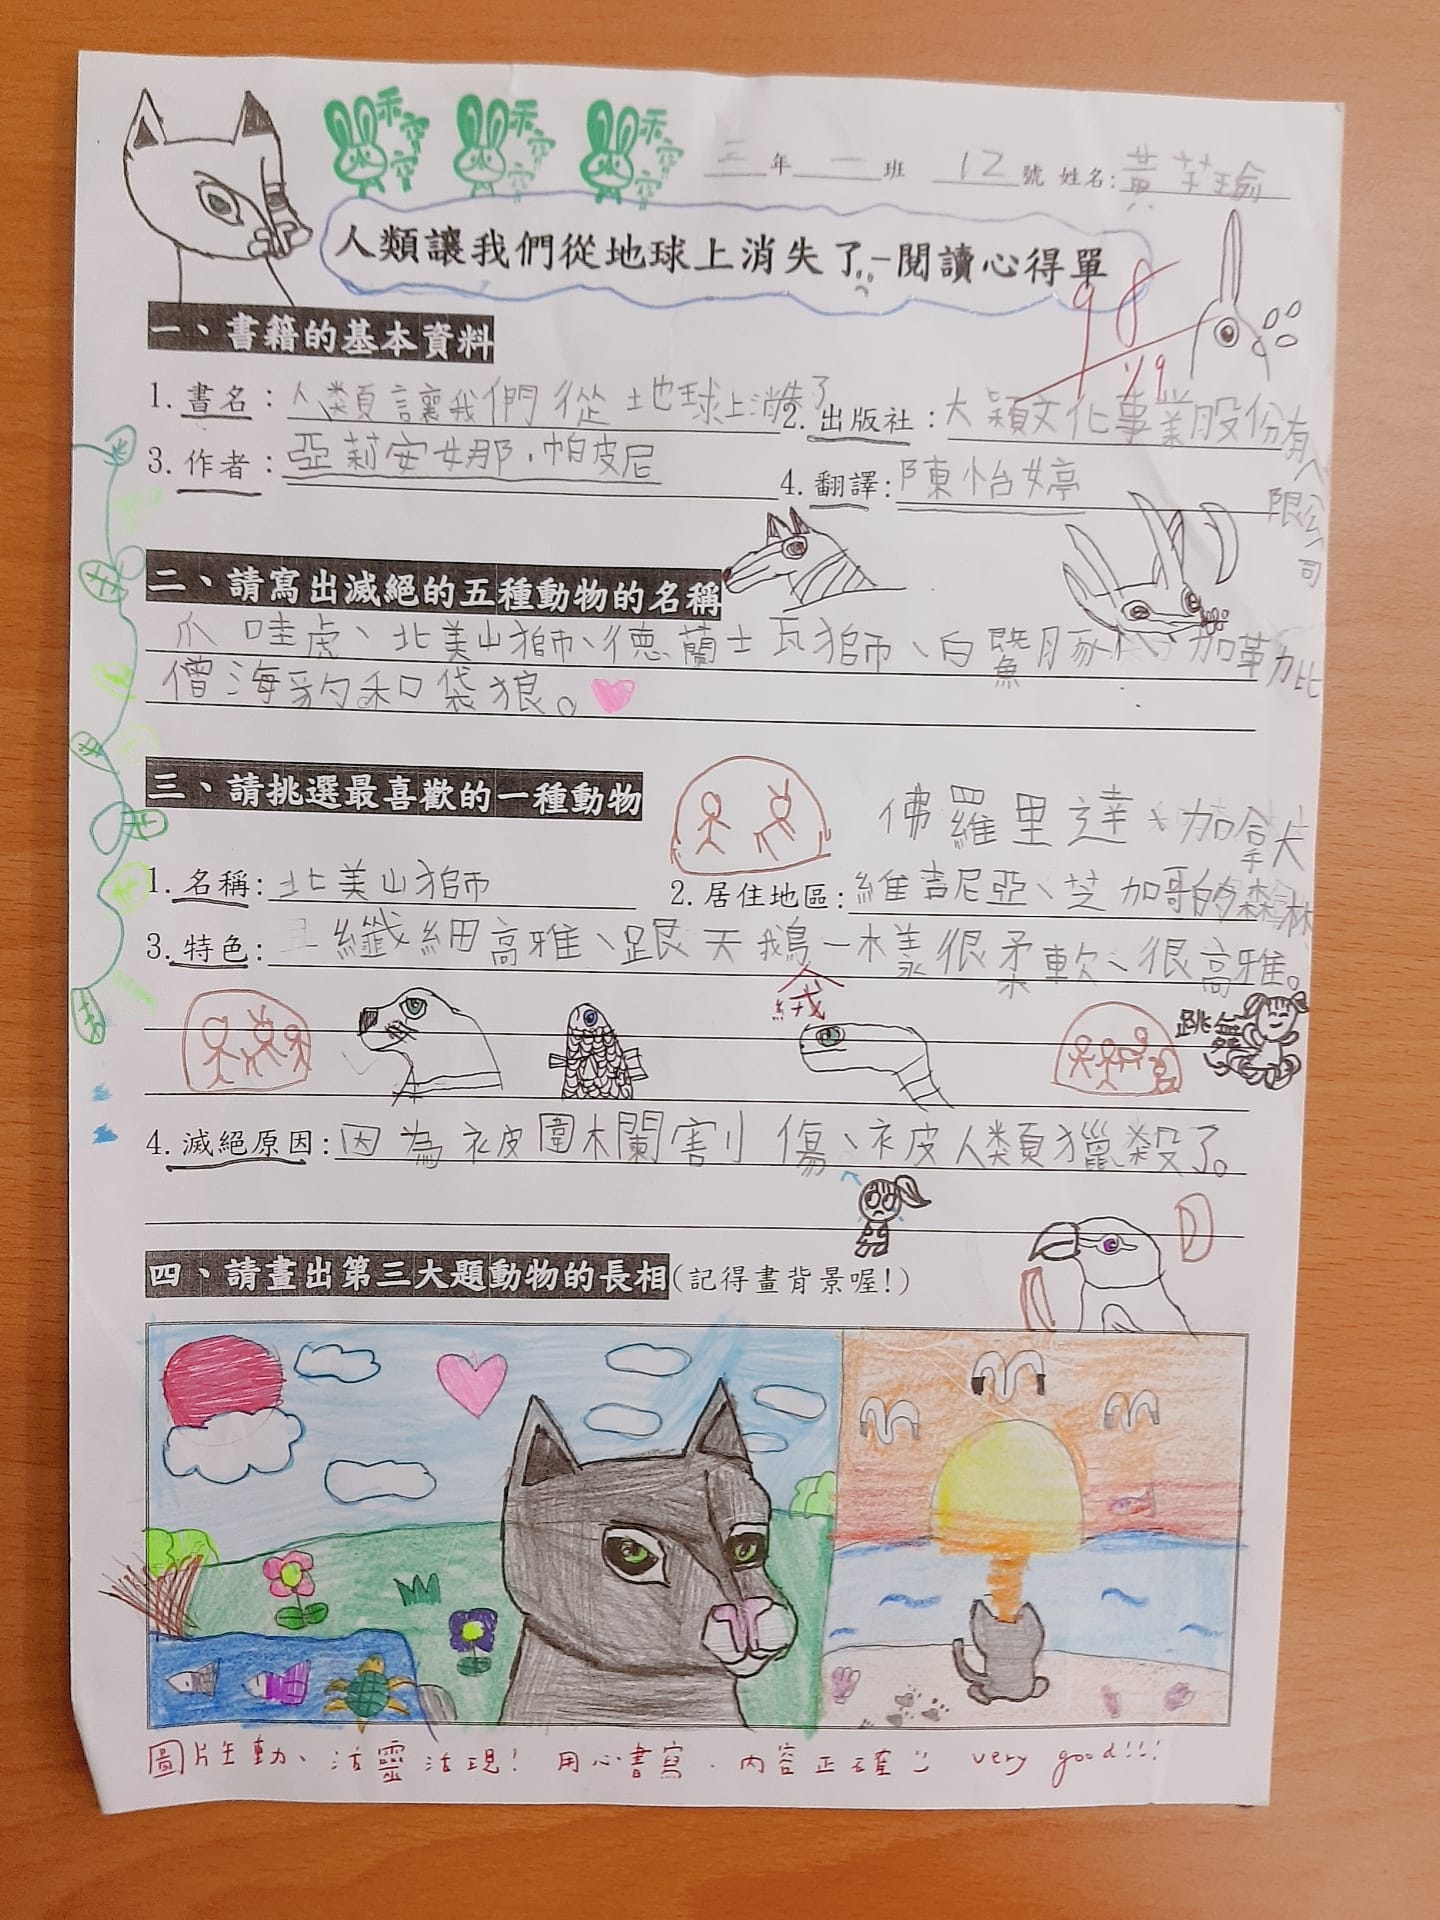 乖 穴穴 乖 穴穴 乖 穴穴
三年一班 12號 姓名:黃芊瑜
人類讓我們從地球上消失了-閱讀心得單
98
1/9
一、書籍的基本資料
1.書名:人類讓我們從地球上消失了 2.出版社:大穎文化事業股份有限公司
3.作者:亞莉安娜.帕皮尼 4.翻譯:陳怡婷
二、請寫出滅絕的五種動物的名稱
爪哇虎、北美山獅、德蘭士瓦獅、白鱀豚、加勒比
僧海豹和袋狼。
三、請挑選最喜歡的一種動物
佛羅里達、加拿大
1.名稱:北美山獅 2.居住地區:維吉尼亞、芝加哥的森林
3.特色:纖細高雅、跟天鵝一樣很柔軟、很高雅。
絨
跳舞
4.滅絕原因:因為被圍木欄割傷、被人類獵殺了。
四、請畫出第三大題動物的長相(記得畫背景喔!)
圖片生動、活靈活現! 用心書寫.內容正確 very good!!!